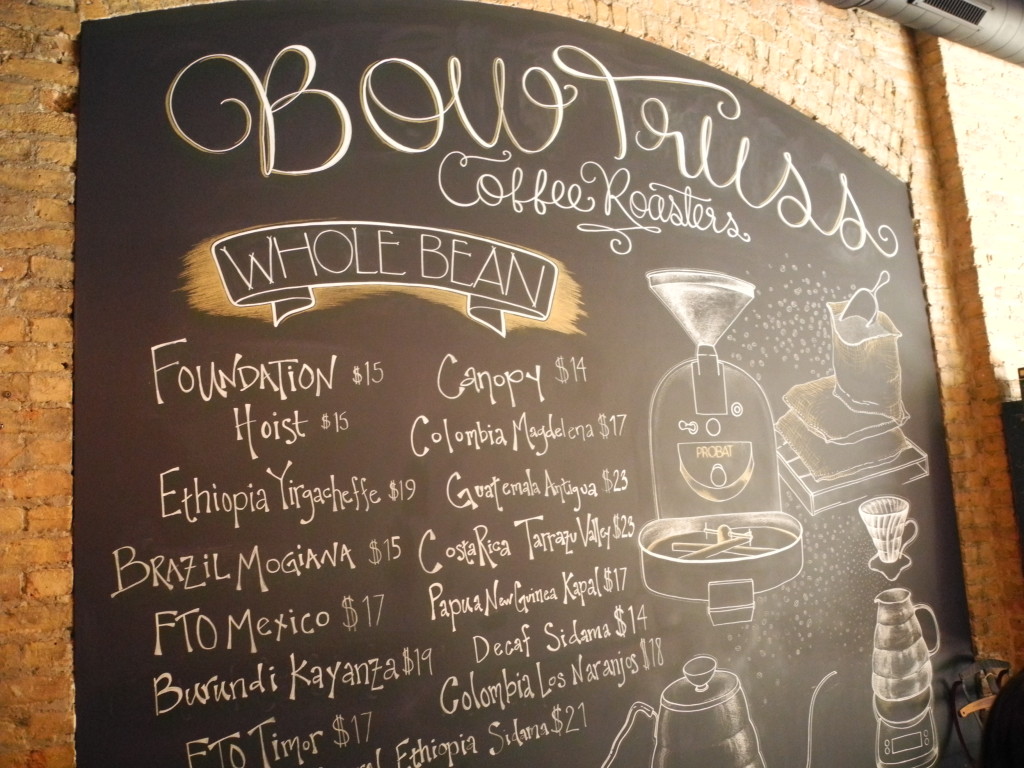 Bow Truss
Coffee Roasters
WHOLE BEAN
FOUNDATION $15
Hoist $15
Ethiopia Yirgacheffe $19
BRAZIL MOGIANA $15
FTO Mexico $17
Burundi Kayanza $19
FTO Timor $17
Canopy $14
Colombia Magdelena $17
Guatemala Antigua $23
Costa Rica Tarrazu Valley $23
Papua New Guinea Kapal $17
Decaf Sidama $14
Colombia Los Naranjos $18
Ethiopia Sidama $21
PROBAT